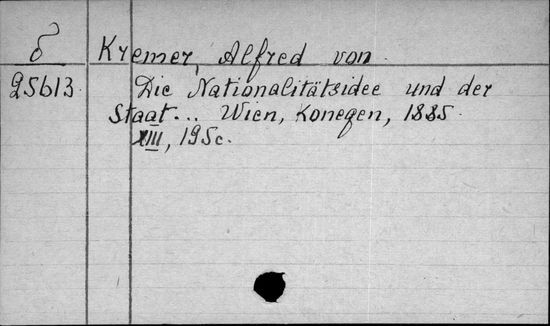 δ Kremer, Alfred von.
25613 Die Nationalitätsidee und der
Staat... Wien, Konegen, 1885.
XIII, 195c.